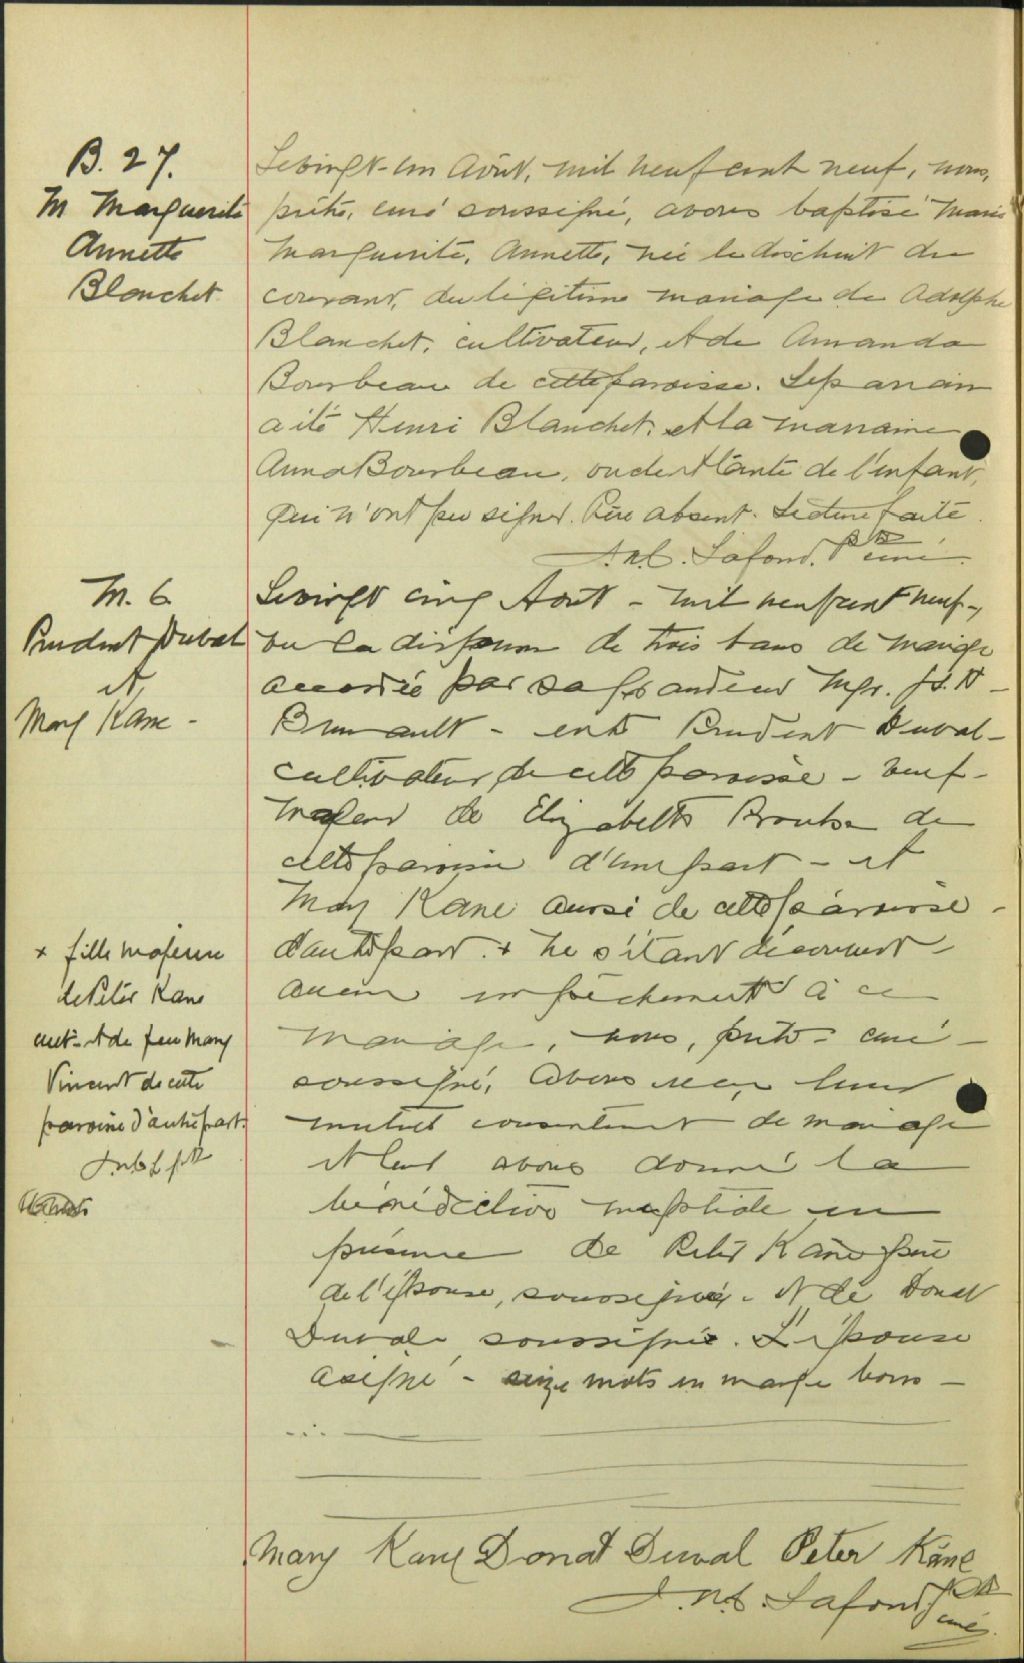 B. 27.
M Marguerite
Annette
Blanchet
Le vingt-un Août, mil neuf cent neuf, nous,
prêtre, curé soussigné, avons baptisé Marie
Marguerite, Annette, née le dix-huit du
courant, du légitime mariage de Adolphe
Blanchet, cultivateur, et de Amanda
Bourbeau de cette paroisse. Le parrain
a été Henri Blanchet, et la marraine
Anna Bourbeau, oncle et tante de l'enfant,
qui n'ont pu signer. Père absent. Lecture faite.
J.N.C. Lafond, Ptre curé.
M. 6
Prudent Duval
et
Mary Kane -
Le vingt cinq Août - mil neuf cent neuf -,
vu la dispense de trois bans de mariage
accordée par sa grandeur Mgr. J. S. H -
Brunault - entre Prudent Duval -
cultivateur de cette paroisse - veuf -
majeur de Elizabeth de
cette paroisse d'une part - et
Mary Kane aussi de cette paroisse -
d'autre part. + Ne s'étant découvert -
aucun empêchement à ce
mariage, nous, prêtre - curé -
soussigné, avons reçu leur
mutuel consentement de mariage
et leur avons donné la
bénédiction nuptiale en
présence de Peter Kane père
de l'épouse, soussigné - et de Donat
Duval soussigné. L'épouse
a signé - seize mots en marge bons -
+ fille majeure
de Peter Kane
cult - et de feu Mary
Vincent de cette
paroisse d'autre part.
J.N.C.L. ptre
Mary Kane Donat Duval Peter Kane
J.N.C. Lafond, Ptre
curé.